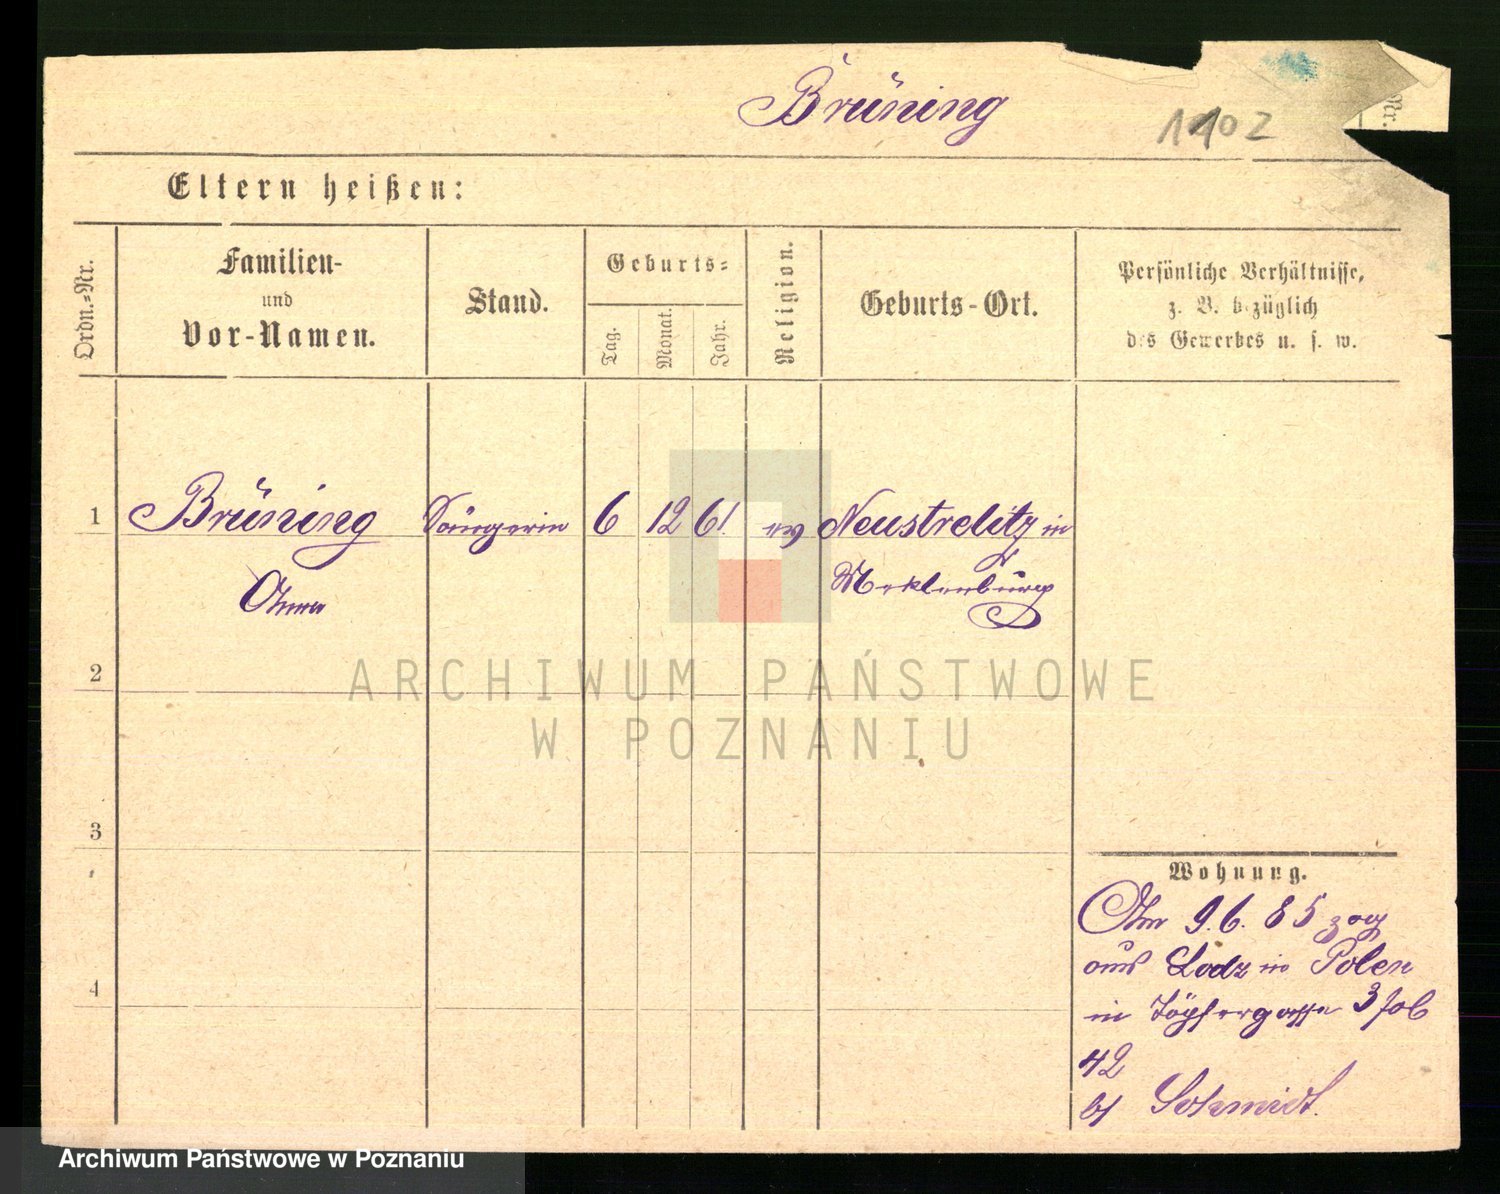 Brüning
1102
Nr.
Eltern heißen:
Ordn.-Nr.
Familien-
und
Vor-Namen.
Stand.
Geburts-
Tag.
Monat.
Jahr.
Religion.
Geburts-Ort.
Persönliche Verhältnisse,
z. B. bezüglich
des Gewerbes u. s. w.
1 Brüning Sängerin 6 12 61. ev Neustrelitz in
Anna Meklenburg
2
ARCHIWUM PAŃSTWOWE
W POZNANIU
3
Wohnung.
Am 9.6.85 zog
aus Lodz in Polen
4
in Töpfergasse 3
42
b/ Schmidt.
Archiwum Państwowe w Poznaniu